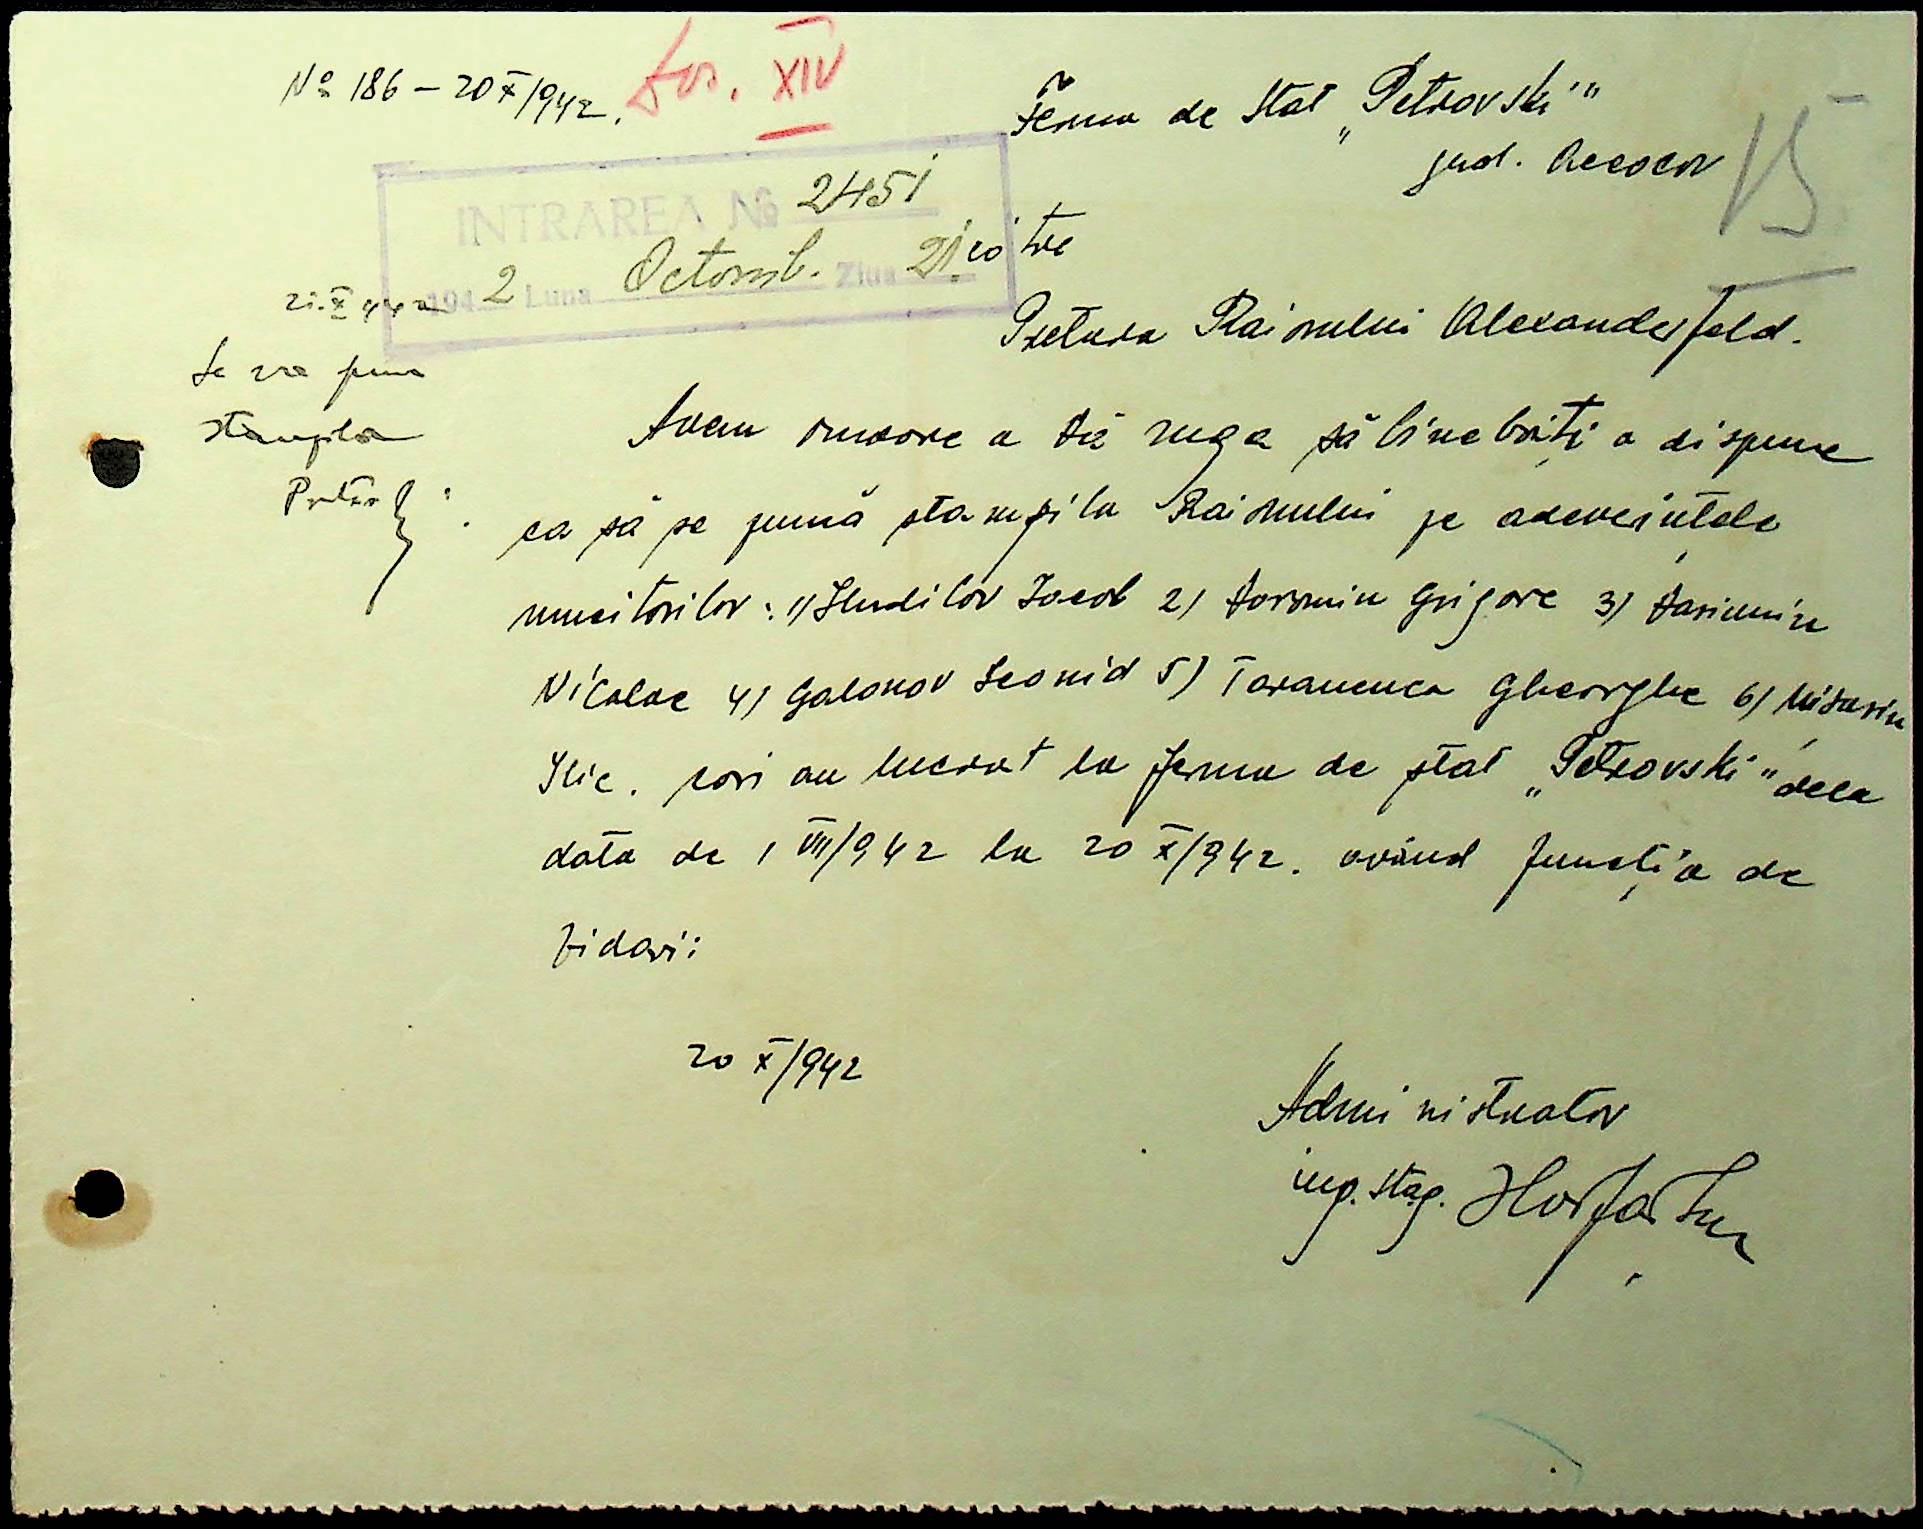 No 186 – 20 X/942.
dos. XIV
Ferma de Stat „Petrovski"
jud. Oceacov
15
INTRAREA No 2451
1942 Luna Octomb. Ziua 21
către
Pretura Raionului Alexanderfeld.
21.X 942
Se va pune
stampila
Pretor
Avem onoare a Vă ruga să bine voiți a dispune
ca să se pună stampila Raionului pe adeverințele
muncitorilor: 1) Iacob 2) Grigore 3)
Nicolae 4) Galonov Leonid 5) Taranenca Gheorghe 6)
Ilie. cari au lucrat la ferma de stat „Petrovski" dela
data de 1 VII/942 la 20 X/942. având funcția de
zidari:
20 X/942
Administrator
ing. stag.